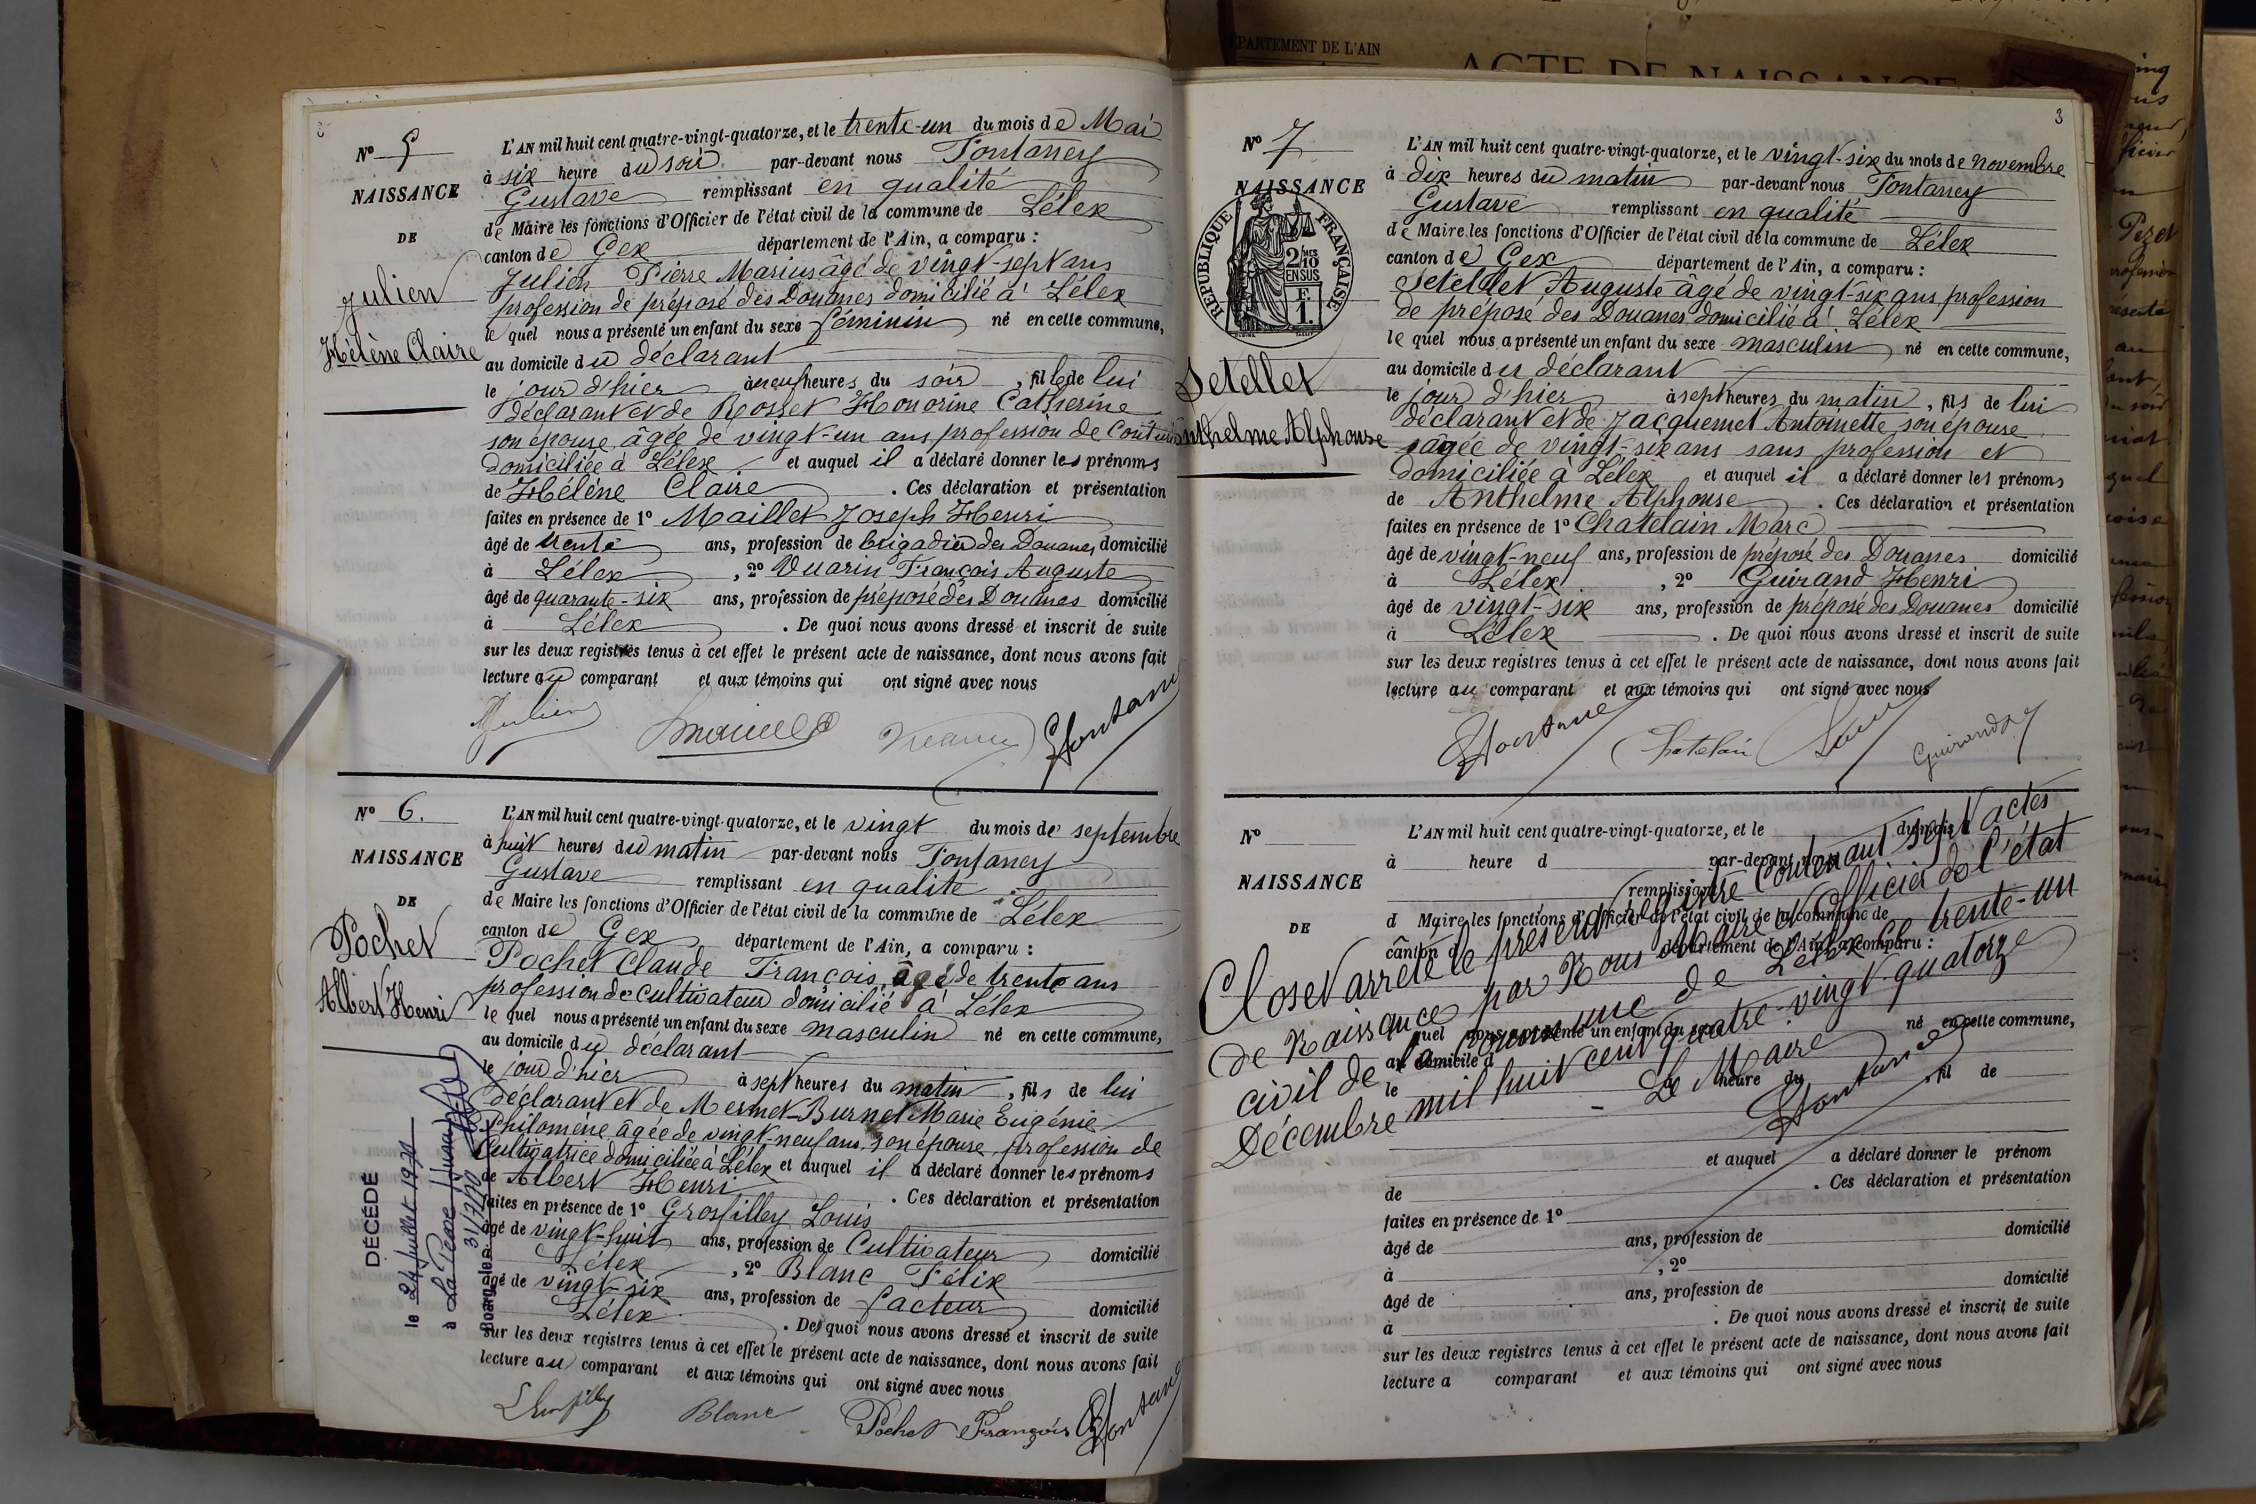 N° 5
NAISSANCE
DE
Julien
Hélène Claire
L'AN mil huit cent quatre-vingt-quatorze, et le trente-un du mois de Mai
à six heure du soir par-devant nous Fontaney
Gustave remplissant en qualité
de Maire les fonctions d'Officier de l'état civil de la commune de Lélex
canton de Gex département de l'Ain, a comparu :
Julien Pierre Marius âgé de vingt-sept ans
profession de préposé des Douanes domicilié à Lélex
le quel nous a présenté un enfant du sexe féminin né en cette commune,
au domicile du déclarant
le jour d'hier à neuf heures du soir, fille de lui
déclarant et de Rosset Honorine Catherine
son épouse âgée de vingt-un ans profession de
domiciliée à Lélex et auquel il a déclaré donner les prénoms
de Hélène Claire. Ces déclaration et présentation
faites en présence de 1° Maillet Joseph Henri
âgé de trente ans, profession de brigadier des Douanes domicilié
à Lélex, 2° Vuarin François Auguste
âgé de quarante-six ans, profession de préposé des Douanes domicilié
à Lélex. De quoi nous avons dressé et inscrit de suite
sur les deux registres tenus à cet effet le présent acte de naissance, dont nous avons fait
lecture au comparant et aux témoins qui ont signé avec nous
Julien
N° 6.
NAISSANCE
DE
Pochet
Albert Henri
L'AN mil huit cent quatre-vingt-quatorze, et le vingt du mois de septembre
à huit heures du matin par-devant nous Fontaney
Gustave remplissant en qualité
de Maire les fonctions d'Officier de l'état civil de la commune de Lélex
canton de Gex département de l'Ain, a comparu :
Pochet Claude François, âgé de trente ans
profession de cultivateur domicilié à Lélex
le quel nous a présenté un enfant du sexe masculin né en cette commune,
au domicile du déclarant
le jour d'hier à sept heures du matin, fils de lui
déclarant et de Mermet-Burnet Marie Eugénie
Philomène âgée de vingt-neuf ans, son épouse, profession de
Cultivatrice domiciliée à Lélex et auquel il a déclaré donner les prénoms
de Albert Henri. Ces déclaration et présentation
faites en présence de 1° Grosfilley Louis
âgé de vingt-huit ans, profession de Cultivateur domicilié
Lélex, 2° Blanc Félix
âgé de vingt-six ans, profession de facteur domicilié
Lélex. De quoi nous avons dressé et inscrit de suite
sur les deux registres tenus à cet effet le présent acte de naissance, dont nous avons fait
lecture au comparant et aux témoins qui ont signé avec nous
Blanc Pochet François
DÉCÉDÉ
le 24 juillet 1970
à
31/7/70
DÉPARTEMENT DE L'AIN
ACTE DE NAISSANCE
3
N° 7
NAISSANCE
RÉPUBLIQUE FRANÇAISE
2/10 EN SUS
F. 1.
Setellet
Anthelme Alphonse
L'AN mil huit cent quatre-vingt-quatorze, et le vingt-six du mois de novembre
à dix heures du matin par-devant nous Fontaney
Gustave remplissant en qualité
de Maire les fonctions d'Officier de l'état civil de la commune de Lélex
canton de Gex département de l'Ain, a comparu :
Setellet Auguste âgé de vingt-six ans profession
de préposé des Douanes domicilié à Lélex
le quel nous a présenté un enfant du sexe masculin né en cette commune,
au domicile du déclarant
le jour d'hier à sept heures du matin, fils de lui
déclarant et de Jacquemet Antoinette son épouse
âgée de vingt-six ans sans profession et
domiciliée à Lélex et auquel il a déclaré donner les prénoms
de Anthelme Alphonse. Ces déclaration et présentation
faites en présence de 1° Chatelain Marc
âgé de vingt-neuf ans, profession de préposé des Douanes domicilié
à Lélex, 2° Guirand Henri
âgé de vingt-six ans, profession de préposé des Douanes domicilié
à Lélex. De quoi nous avons dressé et inscrit de suite
sur les deux registres tenus à cet effet le présent acte de naissance, dont nous avons fait
lecture au comparant et aux témoins qui ont signé avec nous
Chatelain Guirand
N°
NAISSANCE
DE
L'AN mil huit cent quatre-vingt-quatorze, et le du mois d
à heure d par-devant nous
remplissant
d Maire les fonctions d'Officier de l'état civil de la commune de
canton d département de l'Ain, a comparu :
quel nous a présenté un enfant du sexe né en cette commune,
au domicile d
le à heure du , fil de
Clos et arrêté le présent régistre contenant sept actes
de Naissance par Nous Maire et Officier de l'état
civil de la Commune de Lélex ce trente-un
Décembre mil huit cent quatre-vingt quatorze
Le Maire
et auquel a déclaré donner le prénom
de . Ces déclaration et présentation
faites en présence de 1°
âgé de ans, profession de domicilié
à , 2°
âgé de ans, profession de domicilié
à . De quoi nous avons dressé et inscrit de suite
sur les deux registres tenus à cet effet le présent acte de naissance, dont nous avons fait
lecture a comparant et aux témoins qui ont signé avec nous